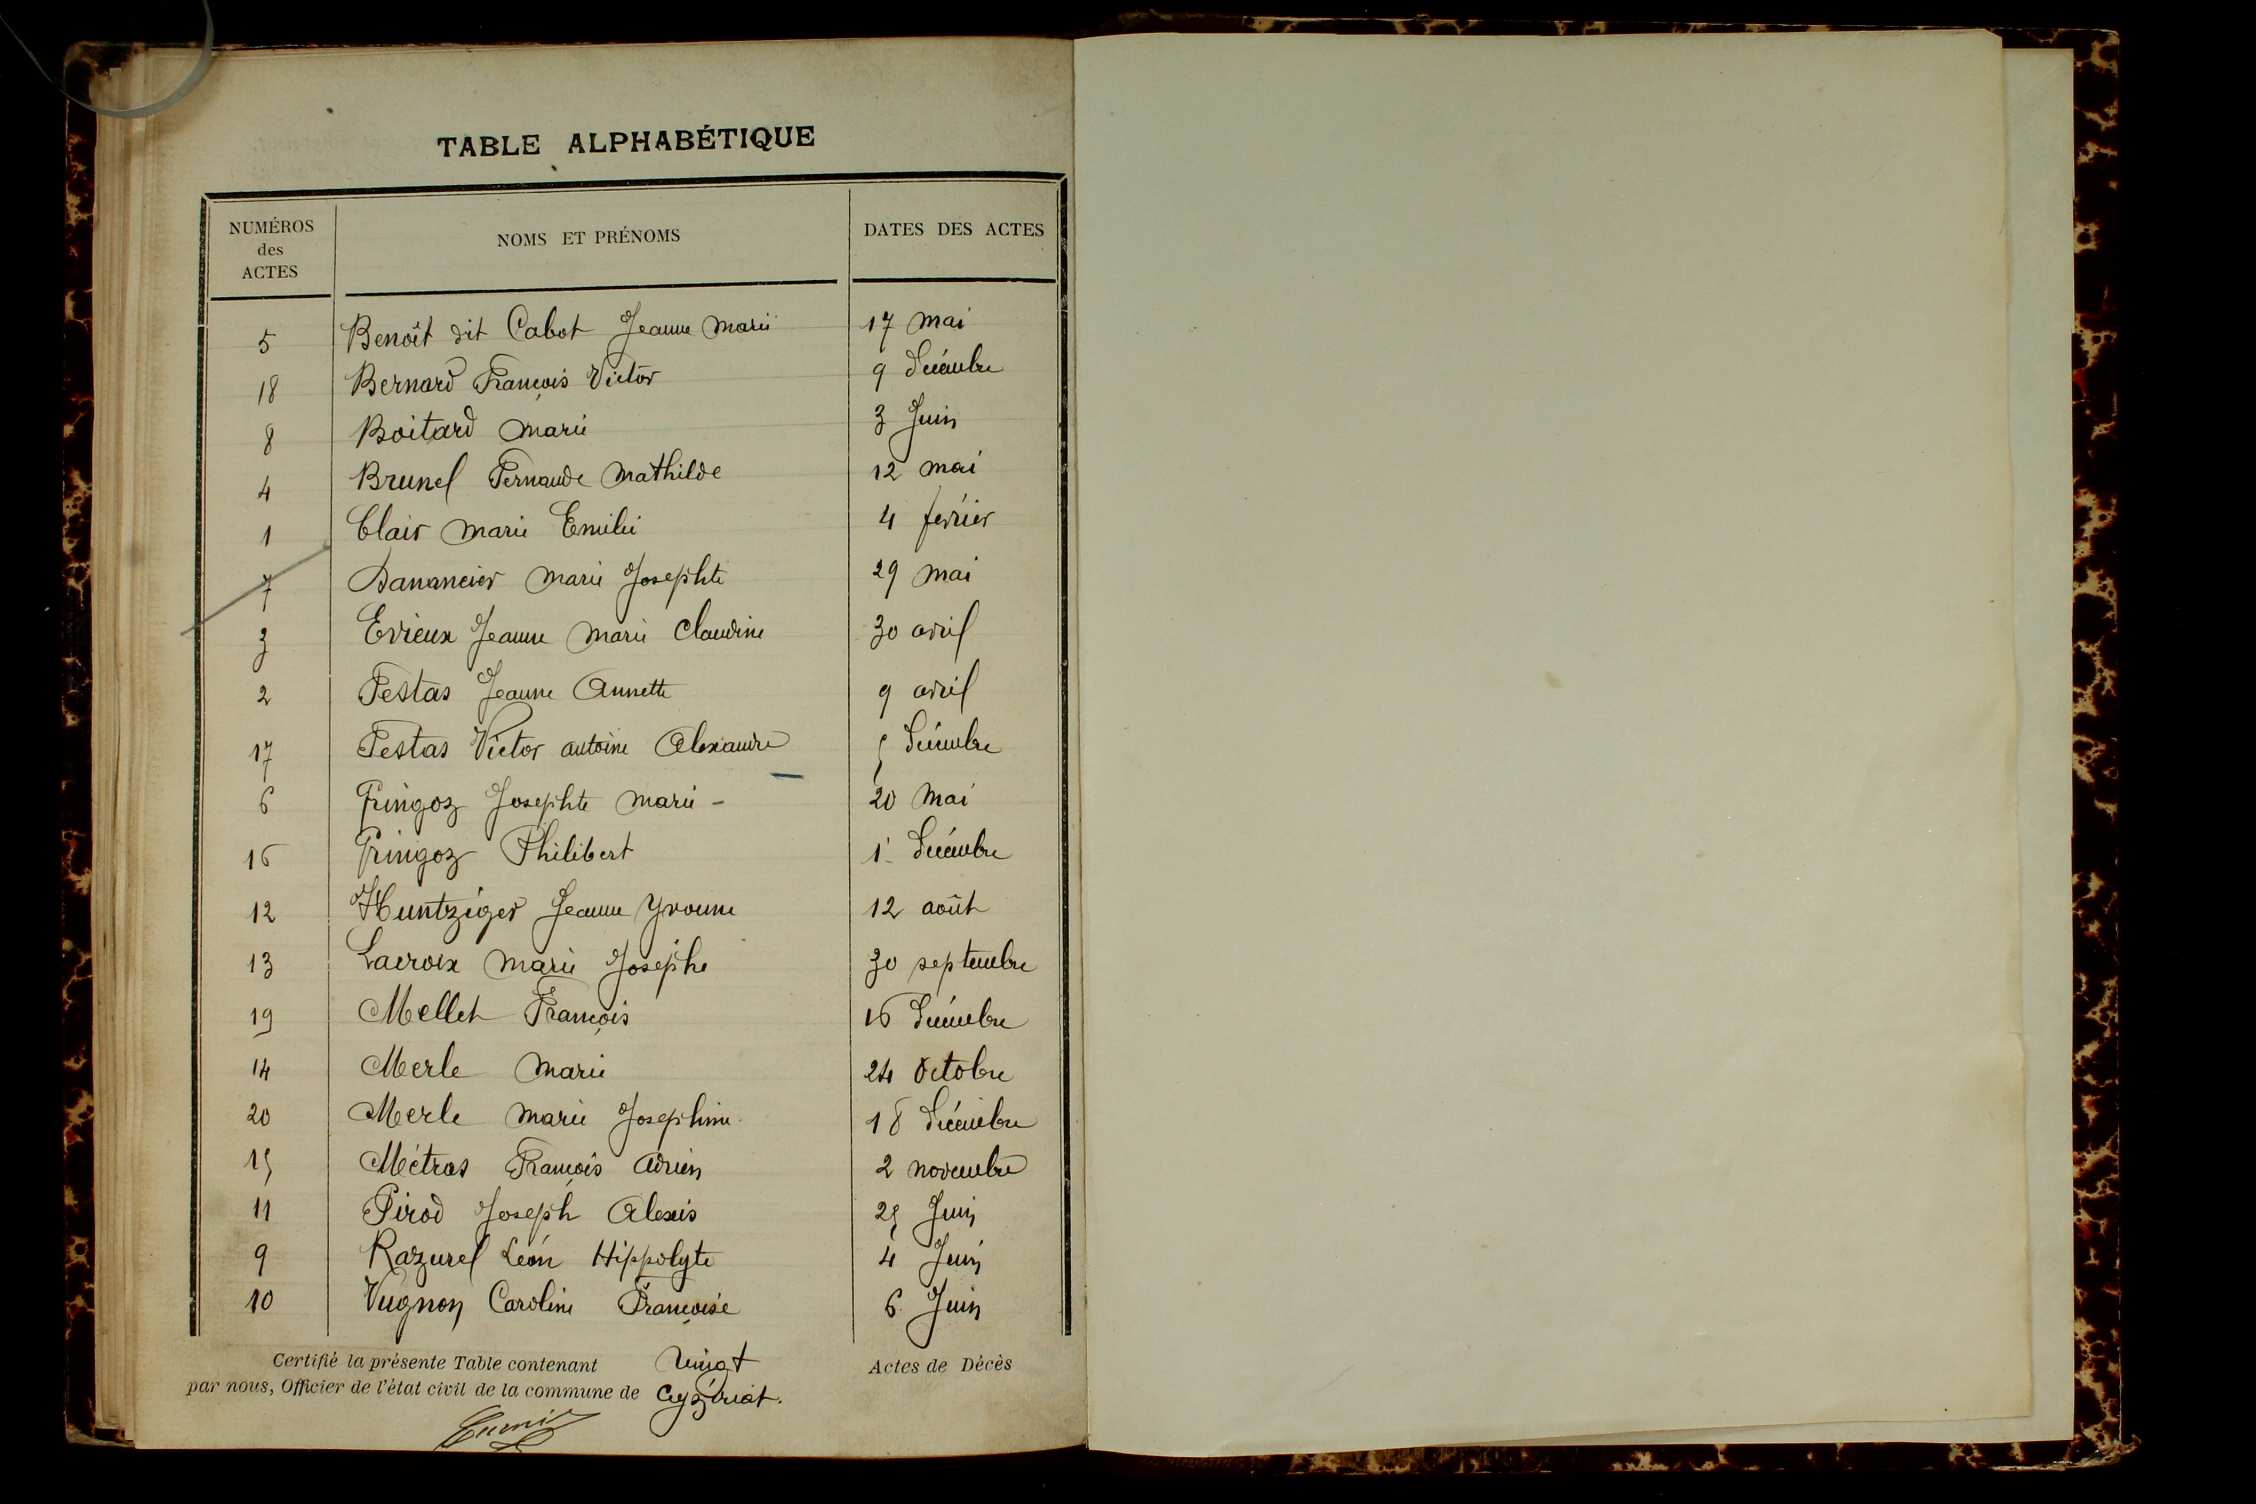 TABLE ALPHABÉTIQUE
NUMÉROS des ACTES NOMS ET PRÉNOMS DATES DES ACTES
5 Benoît dit Cabot Jeanne Marie 17 Mai
18 Bernard François Victor 9 décembre
8 Boitard Marie 3 Juin
4 Brunel Fernande Mathilde 12 mai
1 Clair Marie Emilie 4 février
7 Danancier Marie Josephte 29 Mai
3 Evieux Jeanne Marie Claudine 30 avril
2 Festas Jeanne Annette 9 avril
17 Festas Victor antoine Alexandre 5 décembre
6 Gringoz Josephte Marie - 20 Mai
16 Gringoz Philibert 1 décembre
12 Huntziger Jeanne Yvonne 12 août
13 Lacroix Marie Josephe 30 septembre
19 Mellet François 16 décembre
14 Merle Marie 24 Octobre
20 Merle Marie Josephine 18 décembre
15 Métras François Adrien 2 novembre
11 Pirod Joseph Alexis 25 Juin
9 Razurel Léon Hippolyte 4 Juin
10 Vugnon Caroline Françoise 6 Juin
Certifié la présente Table contenant Vingt Actes de Décès
par nous, Officier de l'état civil de la commune de Ceyzériat.